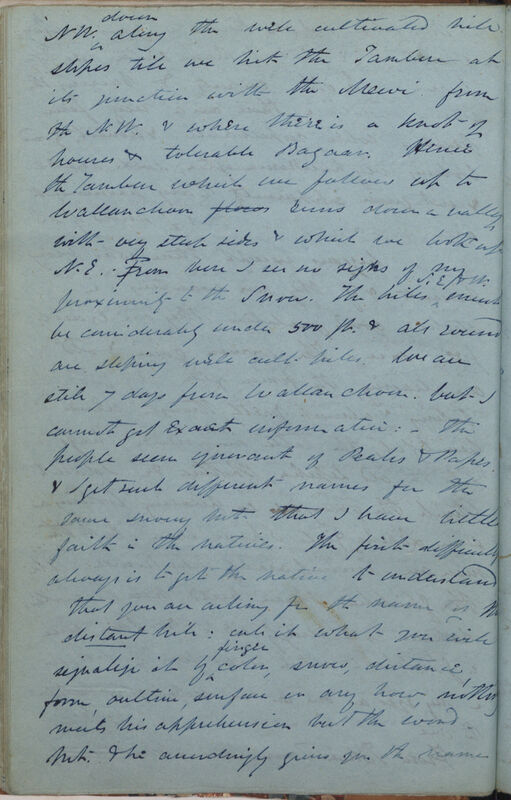 down
NW. along the well cultivated hill
slopes till we hit the Tambur at
its junction with the Mewi from
the N.W. & where there is a knot of
houses & tolerable Bazaar. Hence
the Tambur which we follow up to
Wallanchoon flows runs down a valley
with very steep sides & which we look up
N.E. From here I see no signs of my
proximity to the Snow. The hills S. E. & W. must
be considerably under 500 ft. & all round
are sloping well cult. hills. We are
still 7 days from Wallanchoon. but I
cannot get exact information: - the
people seem ignorant of Peaks & Passes.
& I get such different names for the
same snowy mt. that I have little
faith in the natives. The first difficulty
always is to get the native to understand
that you are asking for the name of the
distant hill: call it what you will
finger
signalize it by color, snow, distance
form outline, surface or any how nothing
meets his apprehension but the word
mt. & he accordingly gives you the name